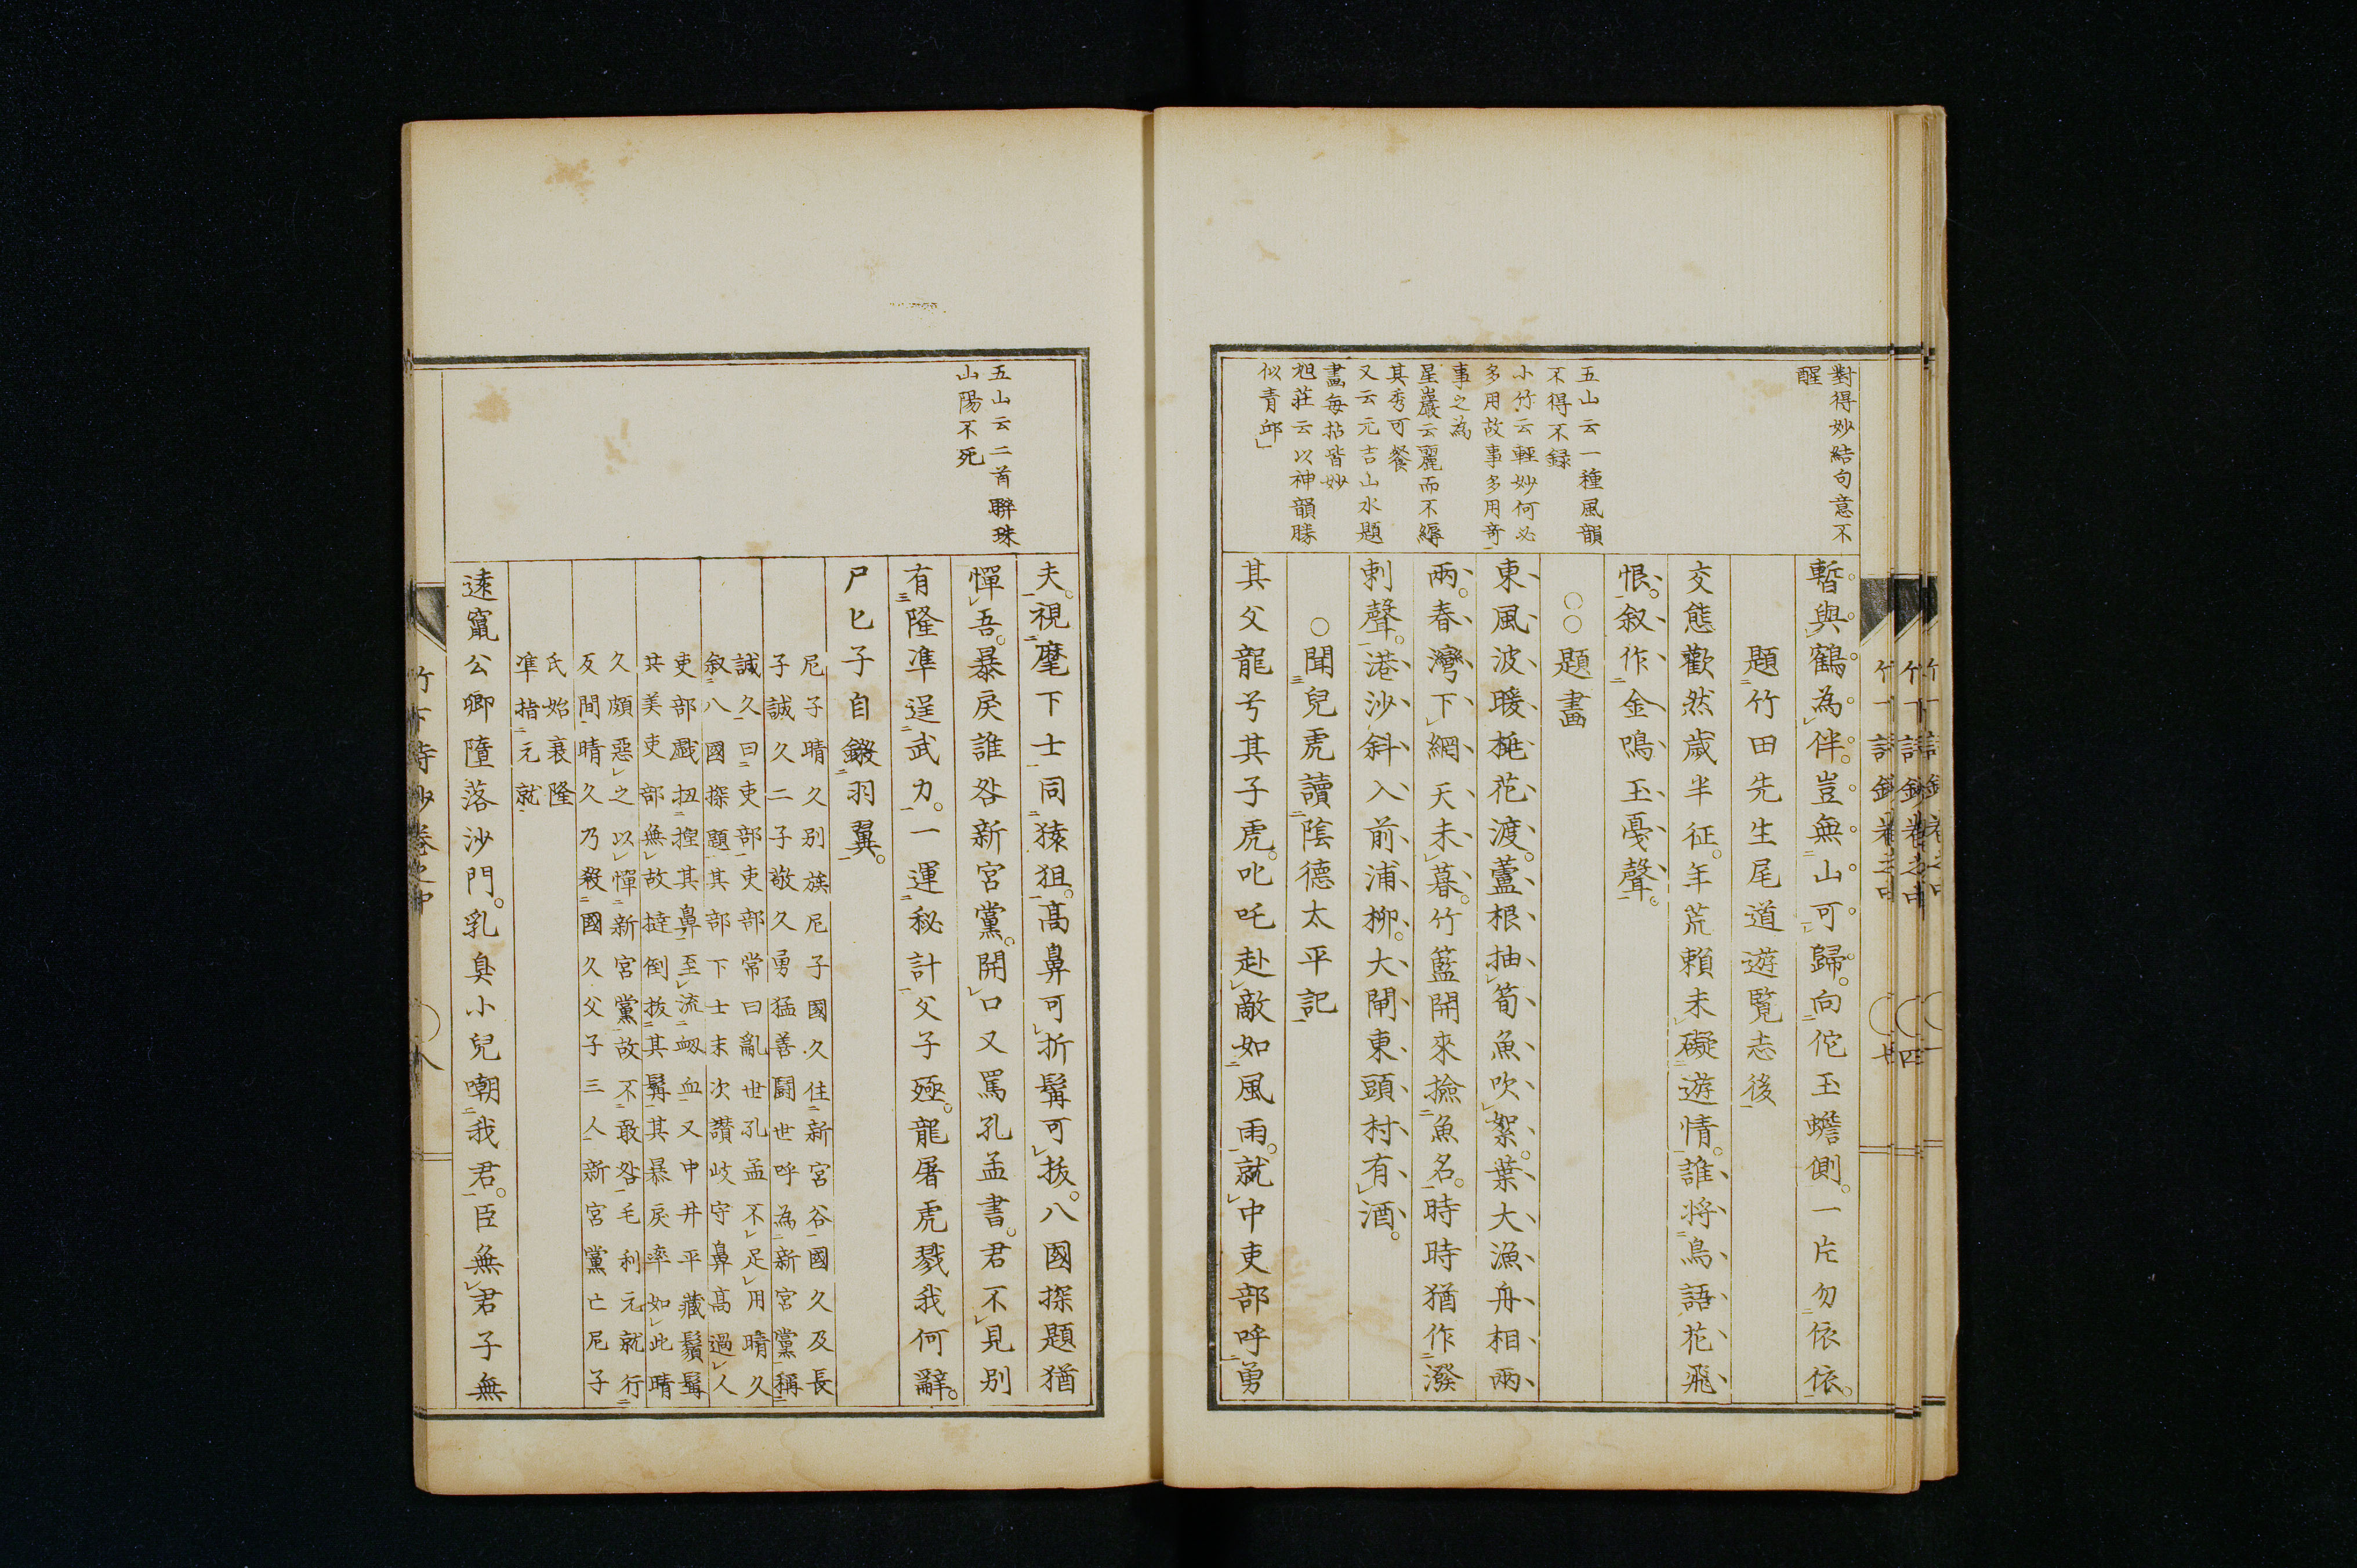 對得妙結句意不
醒
五山云一種風韻
不得不録
小竹云輕妙何必
多用故事多用竒
事之為
星巖云麗而不縟
其秀可餐
又云元吉山水題
畫每拈皆妙
旭荘云以神韻勝
似青邱
暫與鶴為伴。豈無山可歸。向佗玉蟾側。一片勿依依。
題竹田先生尾道遊覧志後
交態歡然歳半征。年荒頼未礙遊情。誰将鳥語花飛
恨。叙作金鳴玉戞聲。
○○題畫
東風波暖桃花渡。蘆根抽筍魚吹絮。葉大漁舟相兩
兩。春灣下網天未暮。竹籃開來撿魚名。時時猶作潑
剌聲。港沙斜入前浦柳。大閘東頭村有酒。
○聞兒虎讀陰德太平記
其父龍兮其子虎。叱吒赴敵如風雨。就中吏部呼勇
五山云二首聯珠
山陽不死
夫。視麾下士同猿狙。髙鼻可折鬚可抜。八國探題猶
憚吾。暴戻誰咎新宮黨。開口又罵孔孟書。君不見別
有隆凖逞武力。一運秘計父子殛。龍屠虎戮我何辭。
尸匕子自鎩羽翼。
尼子晴久別族尼子國久住新宮谷國久及長
子誠久二子敬久勇猛善闘世呼為新宮黨稱
誠久曰吏部吏部常曰亂世孔孟不足用晴久
叙八國探題其部下士末次讃岐守鼻髙過人
吏部戯扭揑其鼻至流衂血又中井平藏鬚髯
共美吏部無故撻倒抜其鬚其暴戻率如此晴
久頗惡之以憚新宮黨故不敢咎毛利元就行
反間晴久乃殺國久父子三人新宮黨亡尼子
氏始衰隆
凖指元就
遠竄公卿墮落沙門。乳臭小兒嘲我君。臣無君子無
竹下詩鈔卷之中
八